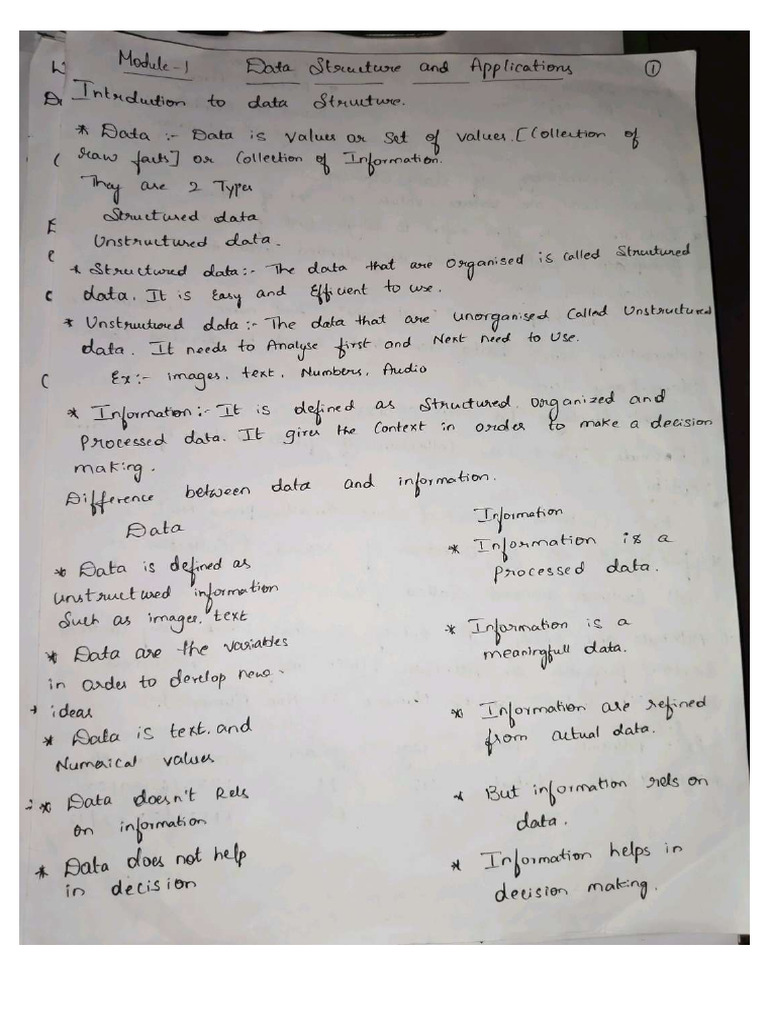 Module-1 Data Structure and Applications 1
Intrduction to data Structure.
* Data :- Data is Values or Set of Values. [Collection of
raw facts] or Collection of Information.
They are 2 Types
Structured data
Unstructured data.
* Structured data:- The data that are Organised is called Structured
data. It is Easy and Efficient to use.
* Unstructured data:- The data that are unorganised Called Unstructured
data. It needs to Analyse first and Next need to Use.
Ex:- images, text, Numbers, Audio
* Information:- It is defined as Structured, Organized and
Processed data. It gives the Context in order to make a decision
making.
Difference between data and information.
Data
* Data is defined as
unstructured information
Such as images, text
* Data are the variables
in order to develop new
ideas
* Data is text. and
Numerical values
* Data doesn't Rels
on information
* Data does not help
in decision
Information
* Information is a
Processed data.
* Information is a
meaningfull data.
* Information are refined
from actual data.
* But information rels on
data.
* Information helps in
decision making.